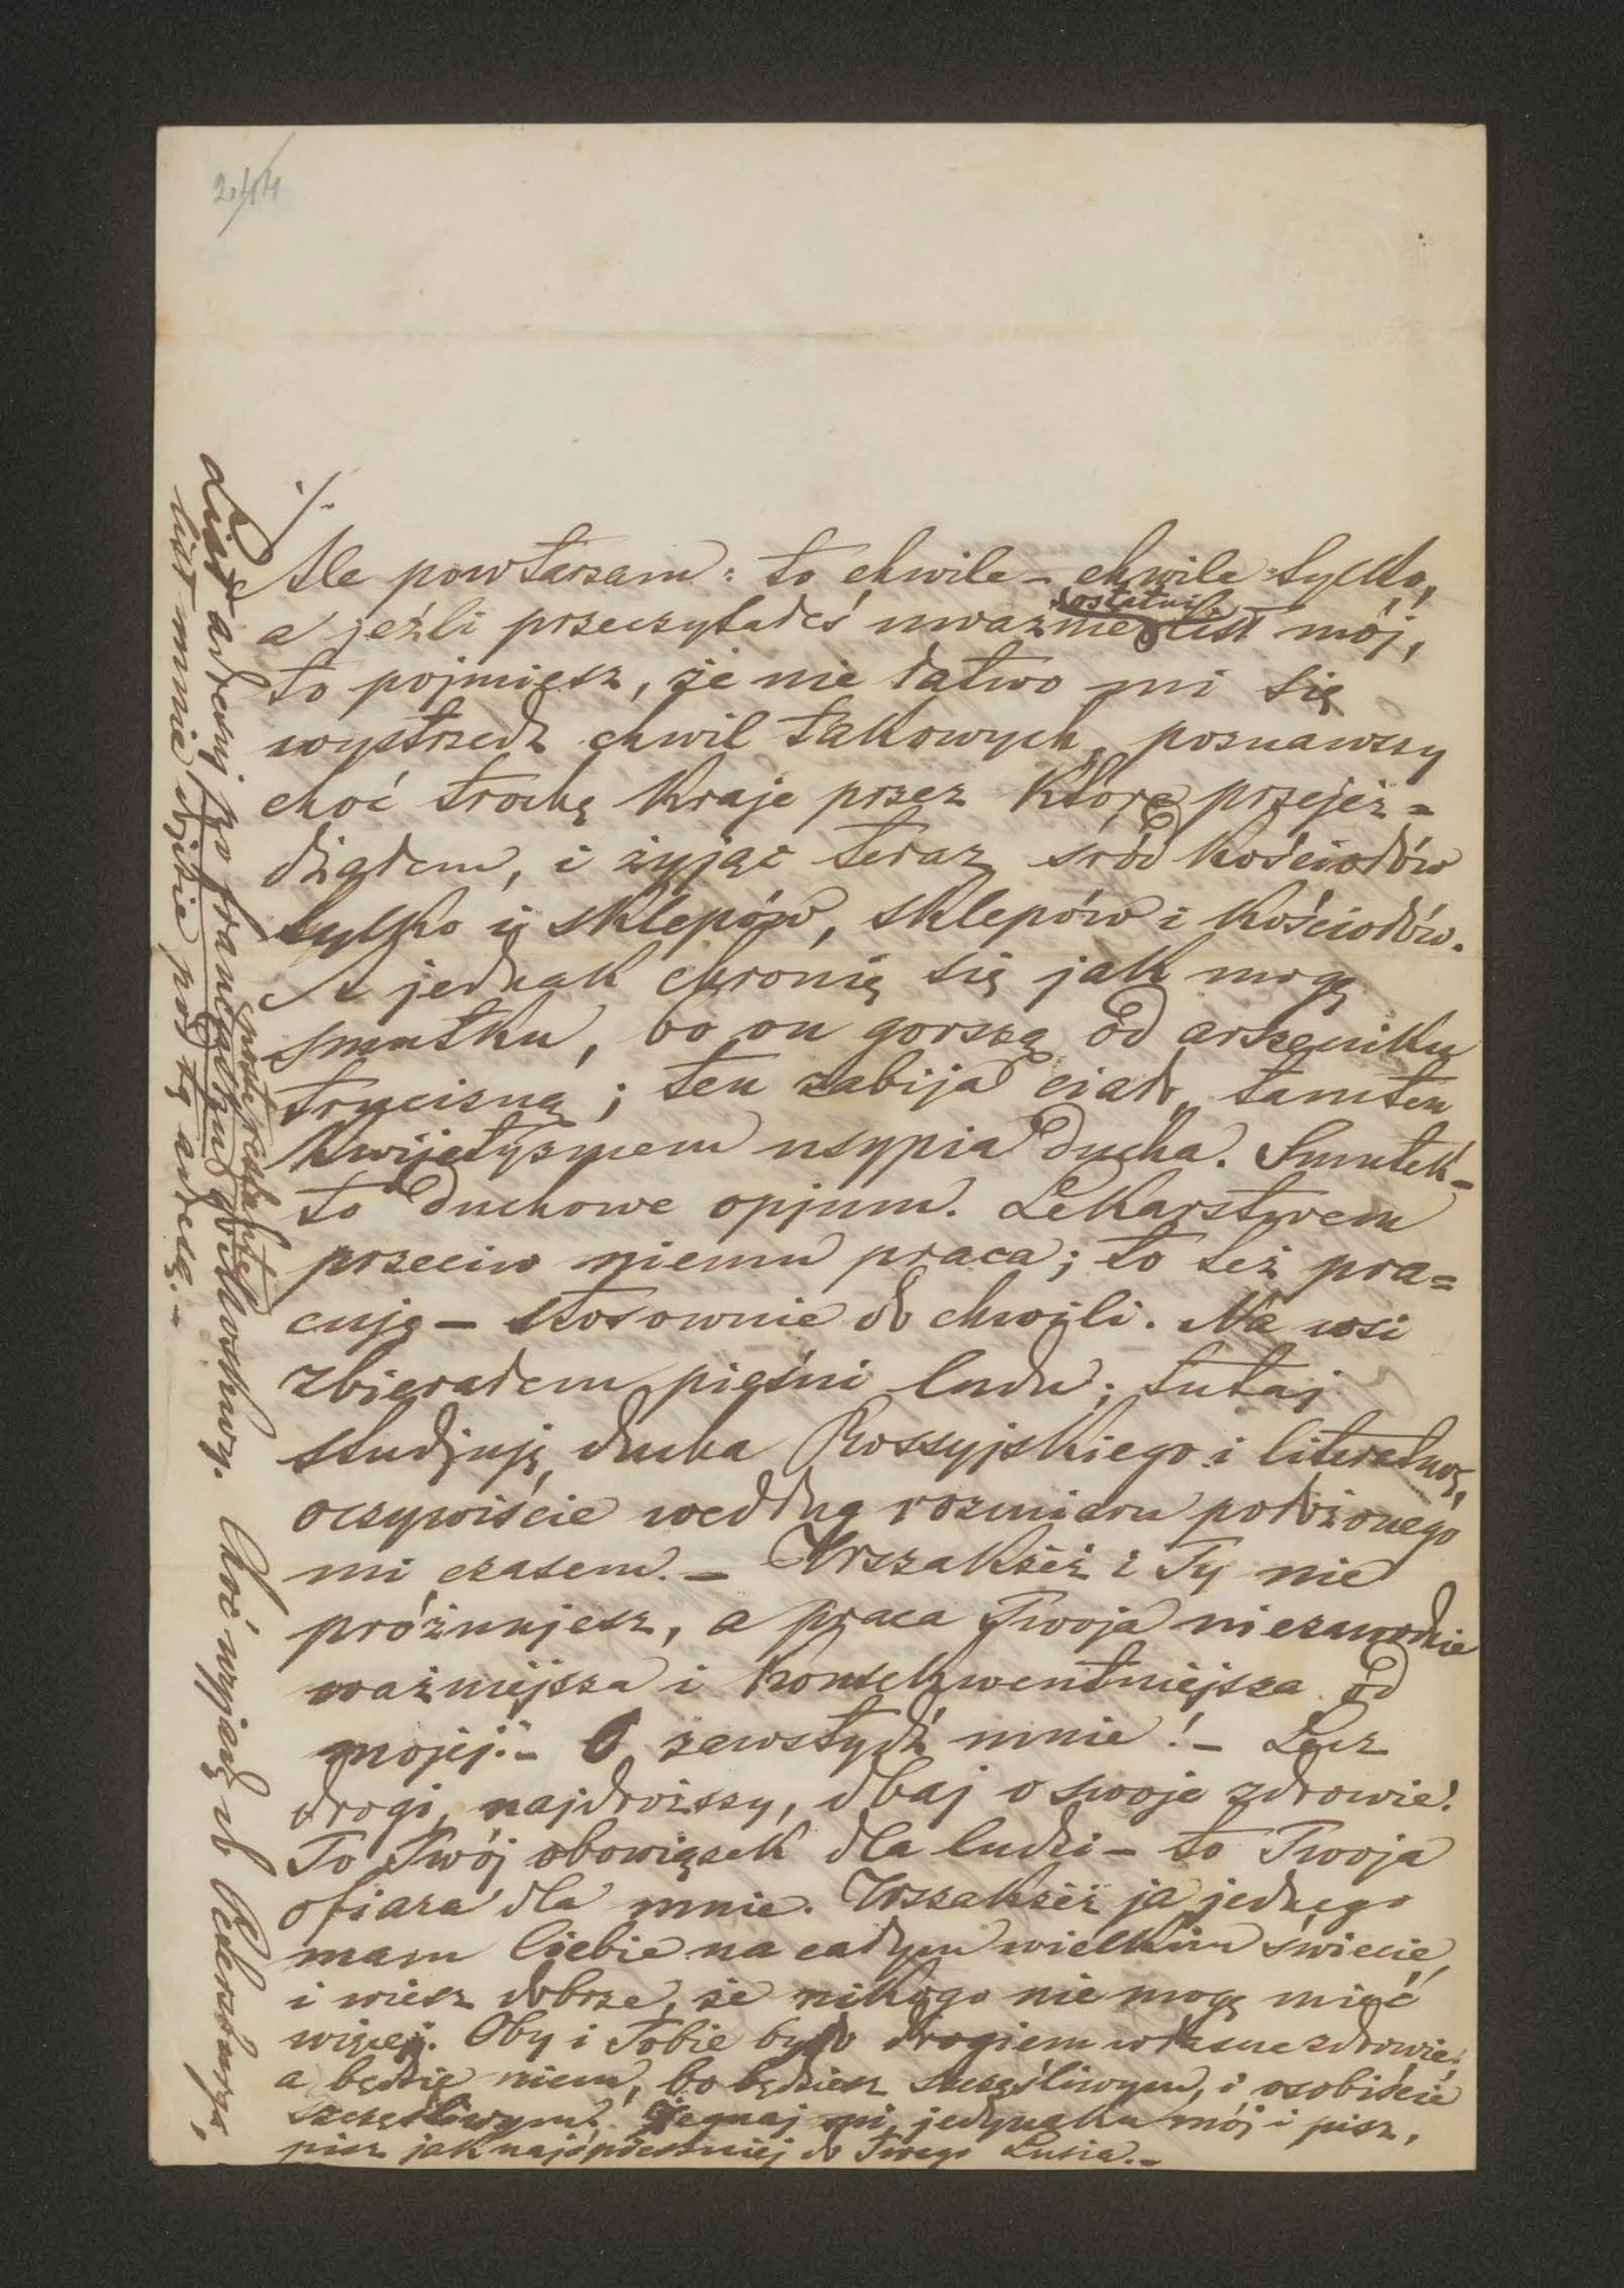 244
./.
Ale powtarzam: to chwile – chwile tylko,
a jeźli przeczytałeś uważnie ostatni list mój,
to pojmiesz, że nie łatwo mi się
wystrzedz chwil takowych, poznawszy
choć trochę kraje przez które przejeż=
dżałem, i żyjąc teraz sród kościołów
tylko i sklepów, sklepów i kościołów.
A jednak chronię się jak mogę
smutku, bo on gorszą od arszeniku
trucizną; ten zabija ciało, tamten
kwijetyzmem usypia ducha. Smutek –
to duchowe opjum. Lekarstwem
przeciw niemu praca; to też pra=
cuję – stosownie do chwili. Na wsi
zbierałem pieśni ludu; tutaj
studjuję ducha Rossyjskiego i literaturę,
oczywiście według rozmiaru położonego
mi czasem. – Wszakżeż i Ty nie
próżnujesz, a praca Twoja niezawodnie
ważniejsza i konsekwentniejsza od
mojej. – O zawstydź mnie! – Lecz
drogi, najdroższy, dbaj o swoje zdrowie!
To Twój obowiązek dla ludzi – to Twoja
ofiara dla mnie. Wszakżeż ja jednego
mam Ciebie na całym wielkim świecie,
i wiesz dobrze, że nikogo nie mogę mieć
więcej. Oby i Tobie było drogiem własne zdrowie!
a będzie niem, bo będziesz szczęśliwym, i osobiście
szczęśliwym! Żegnaj mi, jedynaku mój i pisz,
pisz jak najśpieszniej do Twego Lusia. –
List adresuj po francusku poste restante do Moskwy. Choć wyjadę do Petersburga,
list mnie dojdzie pod tą adresą. –